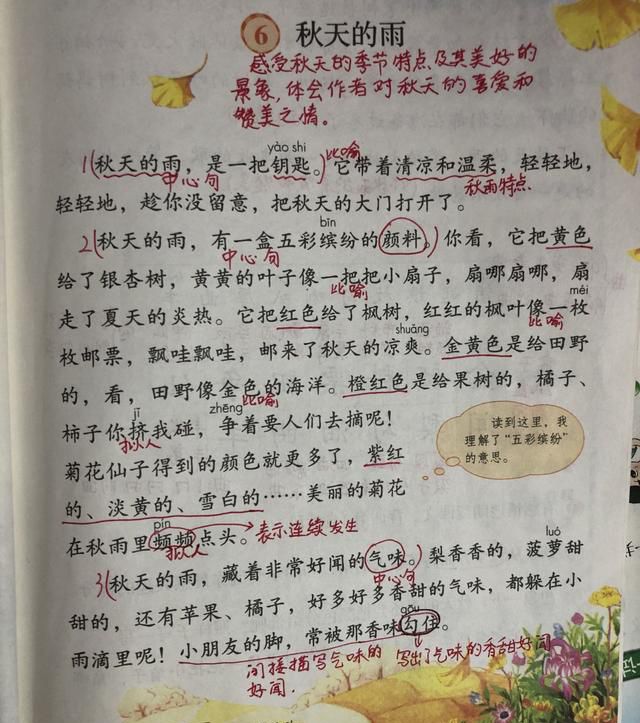 6 秋天的雨
感受秋天的季节特点及其美好的
景象,体会作者对秋天的喜爱和
赞美之情。
yào shi 比喻
1(秋天的雨,是一把钥匙。)它带着清凉和温柔,轻轻地,
中心句 秋雨特点
轻轻地,趁你没留意,把秋天的大门打开了。
bīn
2(秋天的雨,有一盒五彩缤纷的颜料。)你看,它把黄色
中心句
给了银杏树,黄黄的叶子像一把把小扇子,扇哪扇哪,扇
比喻 méi
走了夏天的炎热。它把红色给了枫树,红红的枫叶像一枚
shuāng 比喻
枚邮票,飘哇飘哇,邮来了秋天的凉爽。金黄色是给田野
的,看,田野像金色的海洋。橙红色是给果树的,橘子、
jǐ zhēng 比喻
柿子你挤我碰,争着要人们去摘呢!
拟人
菊花仙子得到的颜色就更多了,紫红
的、淡黄的、雪白的……美丽的菊花
pín
在秋雨里频频点头。表示连续发生
拟人
读到这里,我
理解了“五彩缤纷”
的意思。
luó
3(秋天的雨,藏着非常好闻的气味。)梨香香的,菠萝甜
中心句
甜的,还有苹果、橘子,好多好多香甜的气味,都躲在小
gōu
雨滴里呢!小朋友的脚,常被那香味勾住。
间接描写气味的 写出了气味的香甜好闻
好闻.